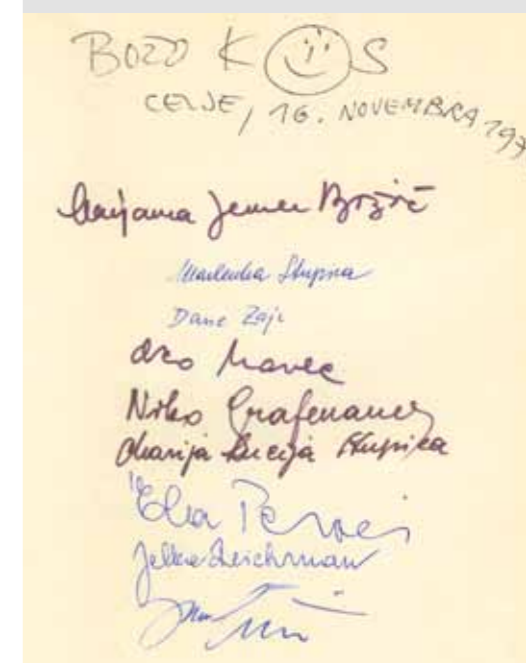 BOŽO KOS
CELJE, 16. NOVEMBRA 197
Marjana Jemec Božič
Marlenka Stupica
Dane Zajc
Niko Grafenauer
Marija Lucija Stupica
Ela Peroci
Jelka Reichman